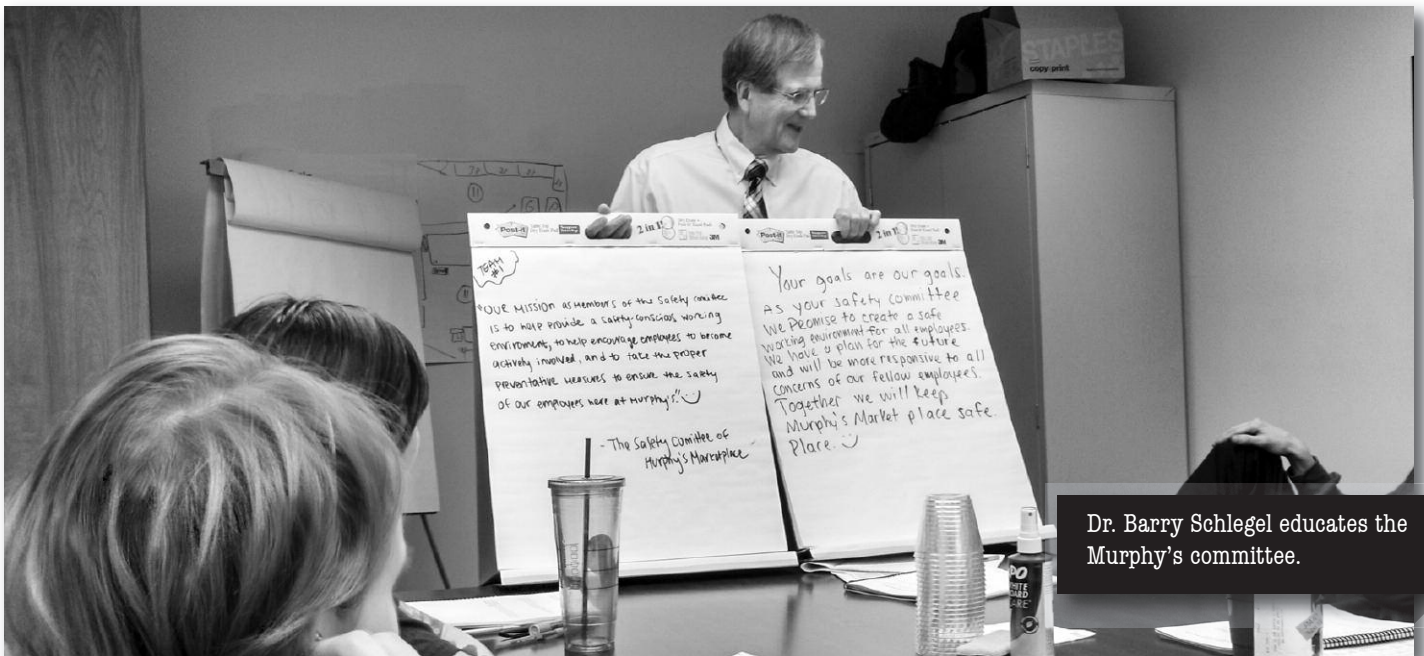 STAPLES
copy·print
Post-it
2 in 1!
3M
Post-it
2 in 1!
3M
TEAM
#1
"OUR MISSION as members of the Safety comittee
is to help provide a safety-conscious working
enviroment, to help encourage employees to become
actively involved, and to take the proper
preventative measures to ensure the safety
of our employees here at Murphy's."
- The Safety Comittee of
Murphy's Marketplace
Your goals are our goals.
As your safety committee
We Promise to create a safe
working environment for all employees.
We have a plan for the future
and will be more responsive to all
concerns of our fellow employees.
Together we will keep
Murphy's Market place safe.
Place.
Dr. Barry Schlegel educates the
Murphy's committee.